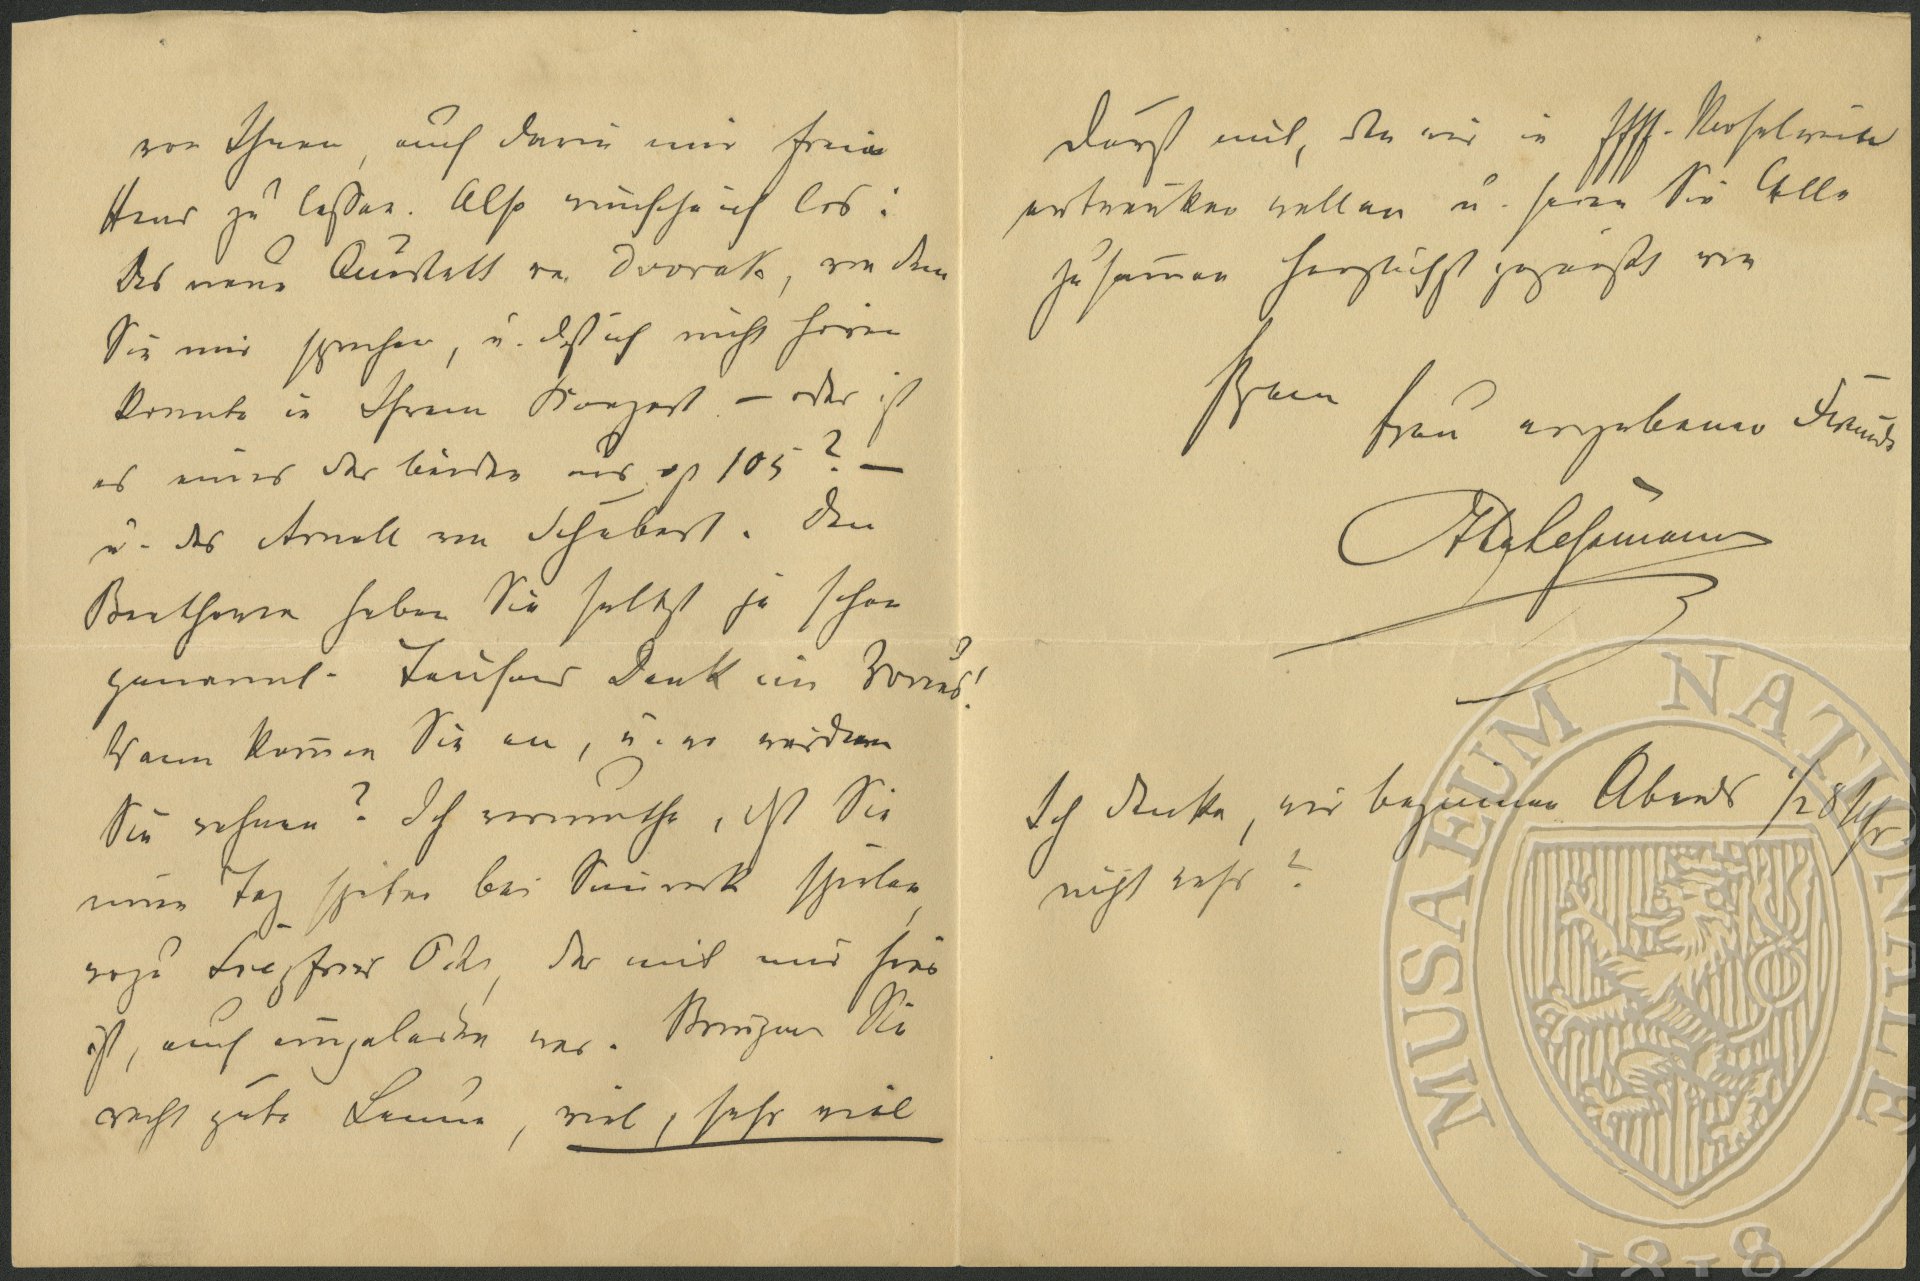 von Ihnen, auch darin mir freie
Hand zu lassen. Also wünsche ich los:
Das neue Quartett von Dvorak, von dem
Sie mir sprachen, u. daß ich nicht hören
konnte in Ihrem Konzert – oder ist
es eines der beiden aus op 105? –
u. das Amoll von Schubert. Den
Beethoven haben Sie selbst ja schon
genannt. Tausend Dank im Voraus!
Wann kom̄en Sie an, u. wo werden
Sie wohnen? Ich vermuthe, daß Sie
einen Tag später bei spielen,
wozu Siegfried Ochs, der mit mir hier
ist, auch eingeladen war. Bringen Sie
recht gute Laune, viel, sehr viel
Durst mit, den wir in
ertränken wollen u. seien Sie Alle
zusam̄en herzlichst gegrüßt von
Ihrem
treu ergebenen Freunde
Ich denke, wir beginnen Abends 1/2 8 Uhr
nicht wahr?
MUSAEUM NATIONALE
1818